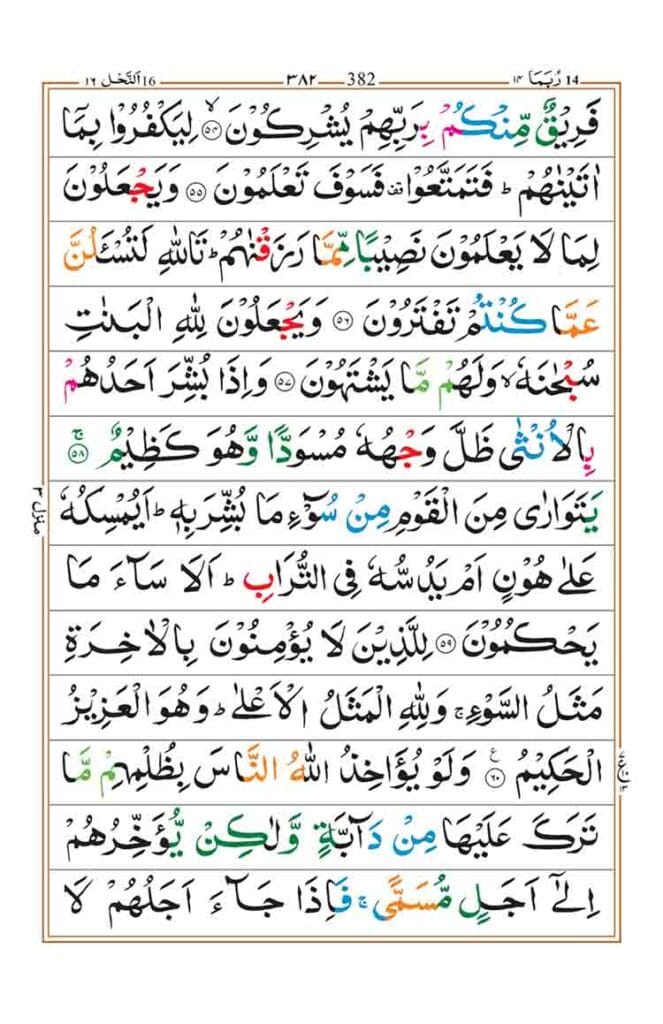 ١٤ رُبَمَا 14 382 ٣٨٢ 16 اَلنَّحْل ١٦
فَرِيْقٌ مِّنْكُمْ بِرَبِّهِمْ يُشْرِكُوْنَ ۙ‏﴿۵۴﴾ لِيَكْفُرُوْا بِمَاۤ
اٰتَيْنٰهُمْ‌ؕ فَتَمَتَّعُوْا‌ ۗ فَسَوْفَ تَعْلَمُوْنَ ﴿۵۵﴾ وَيَجْعَلُوْنَ
لِمَا لَا يَعْلَمُوْنَ نَصِيْبًا مِّمَّا رَزَقْنٰهُمْ‌ؕ تَاللّٰهِ لَتُسْـَٔلُنَّ
عَمَّا كُنْتُمْ تَفْتَرُوْنَ ﴿۵۶﴾ وَيَجْعَلُوْنَ لِلّٰهِ الْبَنٰتِ
سُبْحٰنَهٗ‌ۙ وَلَهُمْ مَّا يَشْتَهُوْنَ ﴿۵۷﴾ وَاِذَا بُشِّرَ اَحَدُهُمْ
بِالْاُنْثٰى ظَلَّ وَجْهُهٗ مُسْوَدًّا وَّهُوَ كَظِيْمٌ‌ۚ ﴿۵۸﴾
يَتَوَارٰى مِنَ الْقَوْمِ مِنْ سُوْۤءِ مَا بُشِّرَ بِهٖؕ اَيُمْسِكُهٗ
عَلٰى هُوْنٍ اَمْ يَدُسُّهٗ فِى التُّرَابِ‌ؕ اَلَا سَآءَ مَا
يَحْكُمُوْنَ ﴿۵۹﴾ لِلَّذِيْنَ لَا يُؤْمِنُوْنَ بِالْاٰخِرَةِ
مَثَلُ السَّوْءِ‌ۚ وَلِلّٰهِ الْمَثَلُ الْاَعْلٰى‌ؕ وَهُوَ الْعَزِيْزُ
الْحَكِيْمُ ﴿۶۰﴾ وَلَوْ يُؤَاخِذُ اللّٰهُ النَّاسَ بِظُلْمِهِمْ مَّا
تَرَكَ عَلَيْهَا مِنْ دَآبَّةٍ وَّلٰكِنْ يُّؤَخِّرُهُمْ
اِلٰٓى اَجَلٍ مُّسَمًّى‌ۚ فَاِذَا جَآءَ اَجَلُهُمْ لَا
منزل ٣